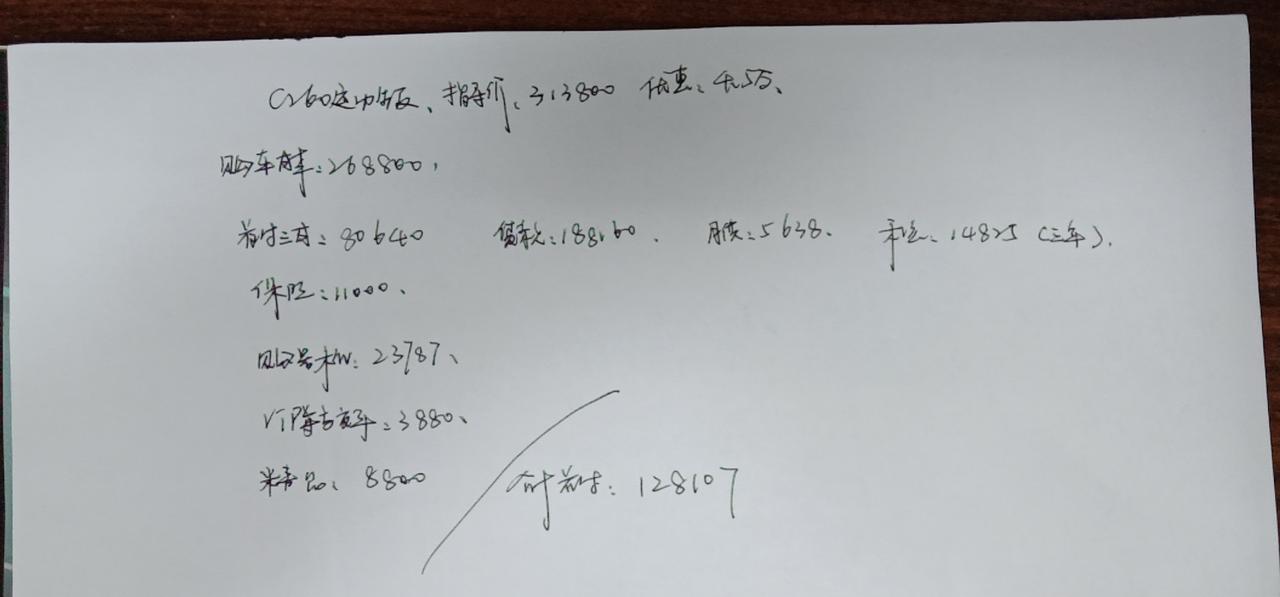 C260运动版、指导价、313800 优惠、4.5万、
购车价格:268800,
首付三成:80640 贷款:188160. 月供:5638、 利息:14825(三年).
保险:11000、
购置税:23787、
VIP尊享:3880、
精品、8800 合计首付:128107